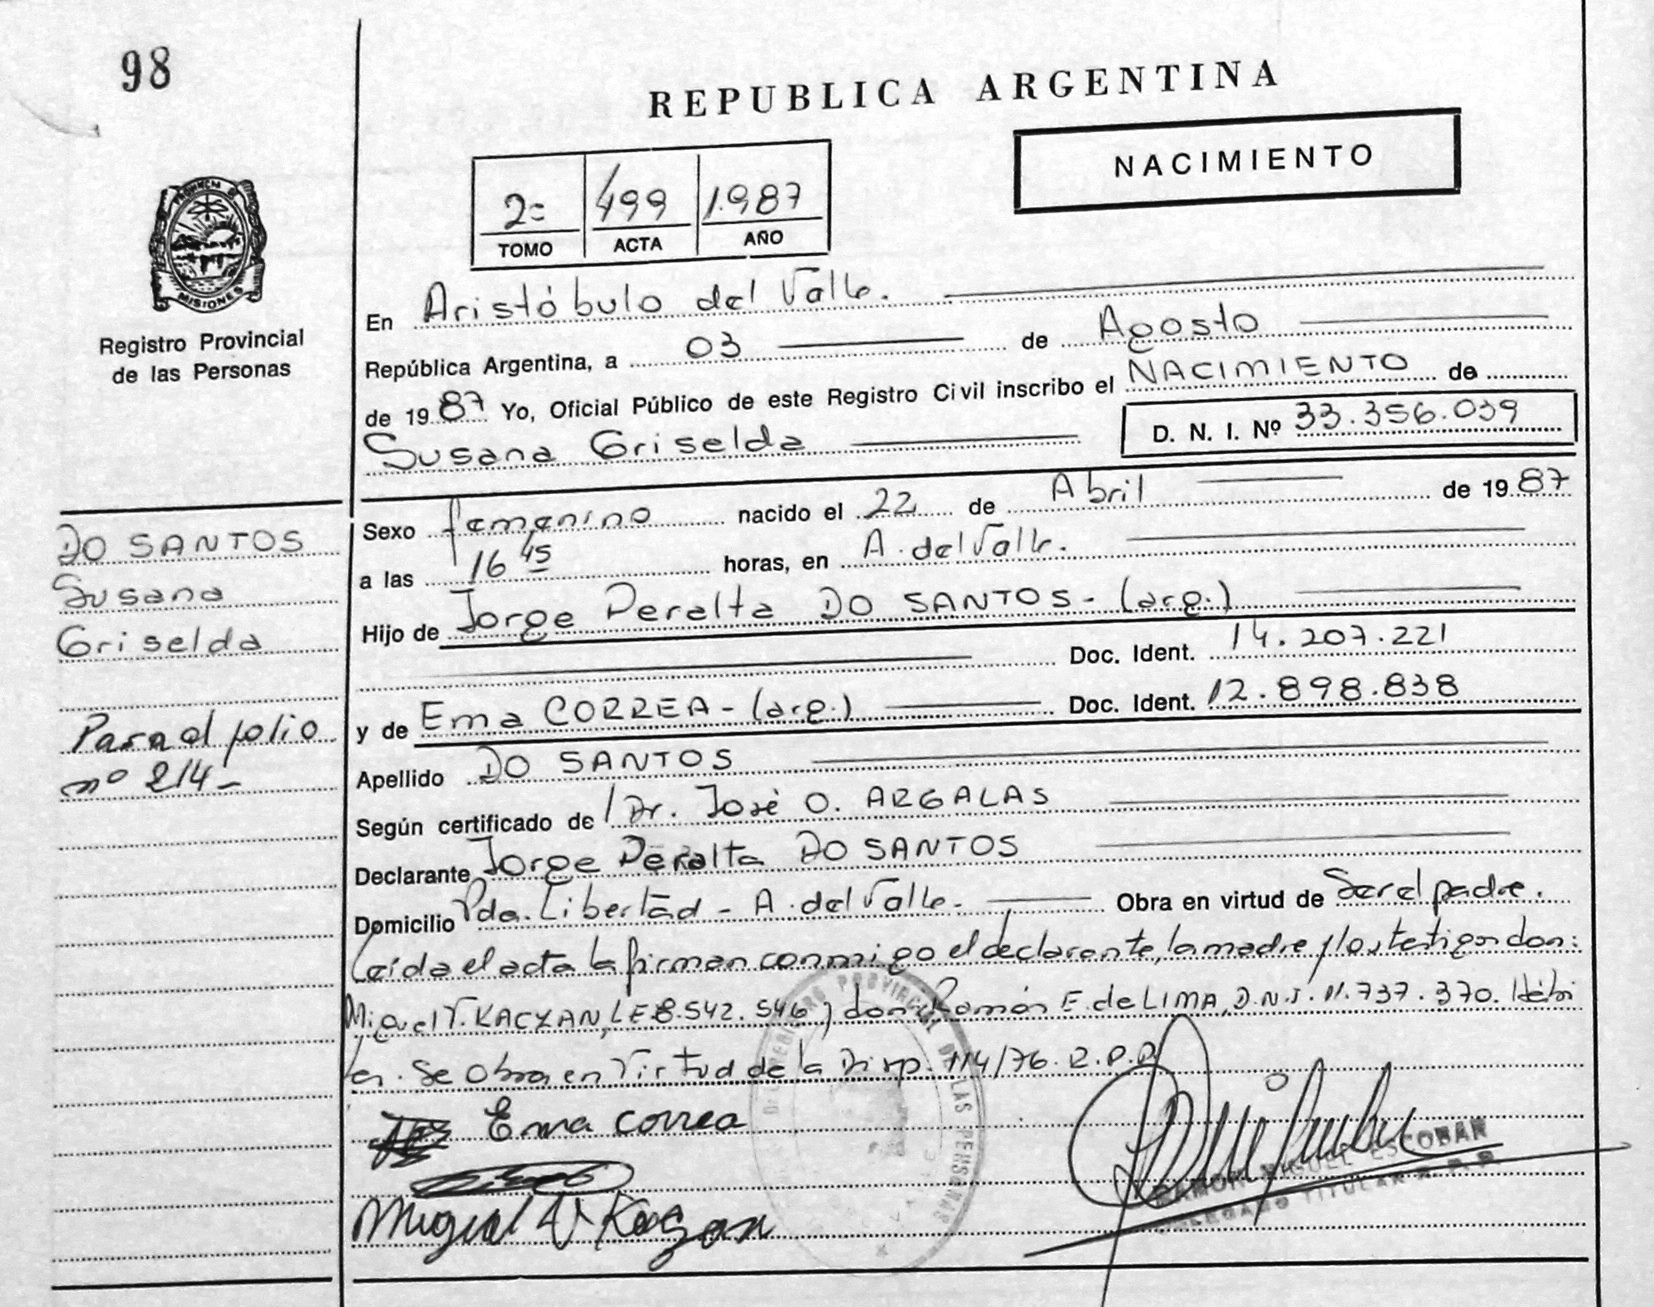 98
REPUBLICA ARGENTINA
NACIMIENTO
2º 499 1.987
TOMO ACTA AÑO
PROVINCIA DE
MISIONES
Registro Provincial
de las Personas
En Aristóbulo del Valle.
República Argentina, a 03 de Agosto
de 1987 Yo, Oficial Público de este Registro Civil inscribo el NACIMIENTO de
Susana Griselda D. N. I. Nº 33.356.039
Sexo femenino nacido el 22 de Abril de 1987
a las 16 45 horas, en A. del Valle.
Hijo de Jorge Peralta DO SANTOS - (arg.)
Doc. Ident. 14.207.221
y de Ema CORREA - (arg.) Doc. Ident. 12.898.838
Apellido DO SANTOS
Según certificado de Dr. José O. ARGALAS
Declarante Jorge Peralta DO SANTOS
Domicilio Pda. Libertad - A. del Valle. Obra en virtud de Ser el padre.
Leída el acta la firman conmigo el declarante, la madre y los testigos don:
Miguel V. KACZAN, LE 8.542.546 y don Ramón E. de LIMA, D.N.I. 11.737.370. Hábi
les. Se Obra en Virtud de la Disp. 114/76. R.P.P.
Ema Correa
Miguel V Kaczan
RAMON MIGUEL ESCOBAR
DELEGADO TITULAR
REGISTRO PROVINCIAL DE LAS PERSONAS
DO SANTOS
Susana
Griselda
Para al folio
nº 214-